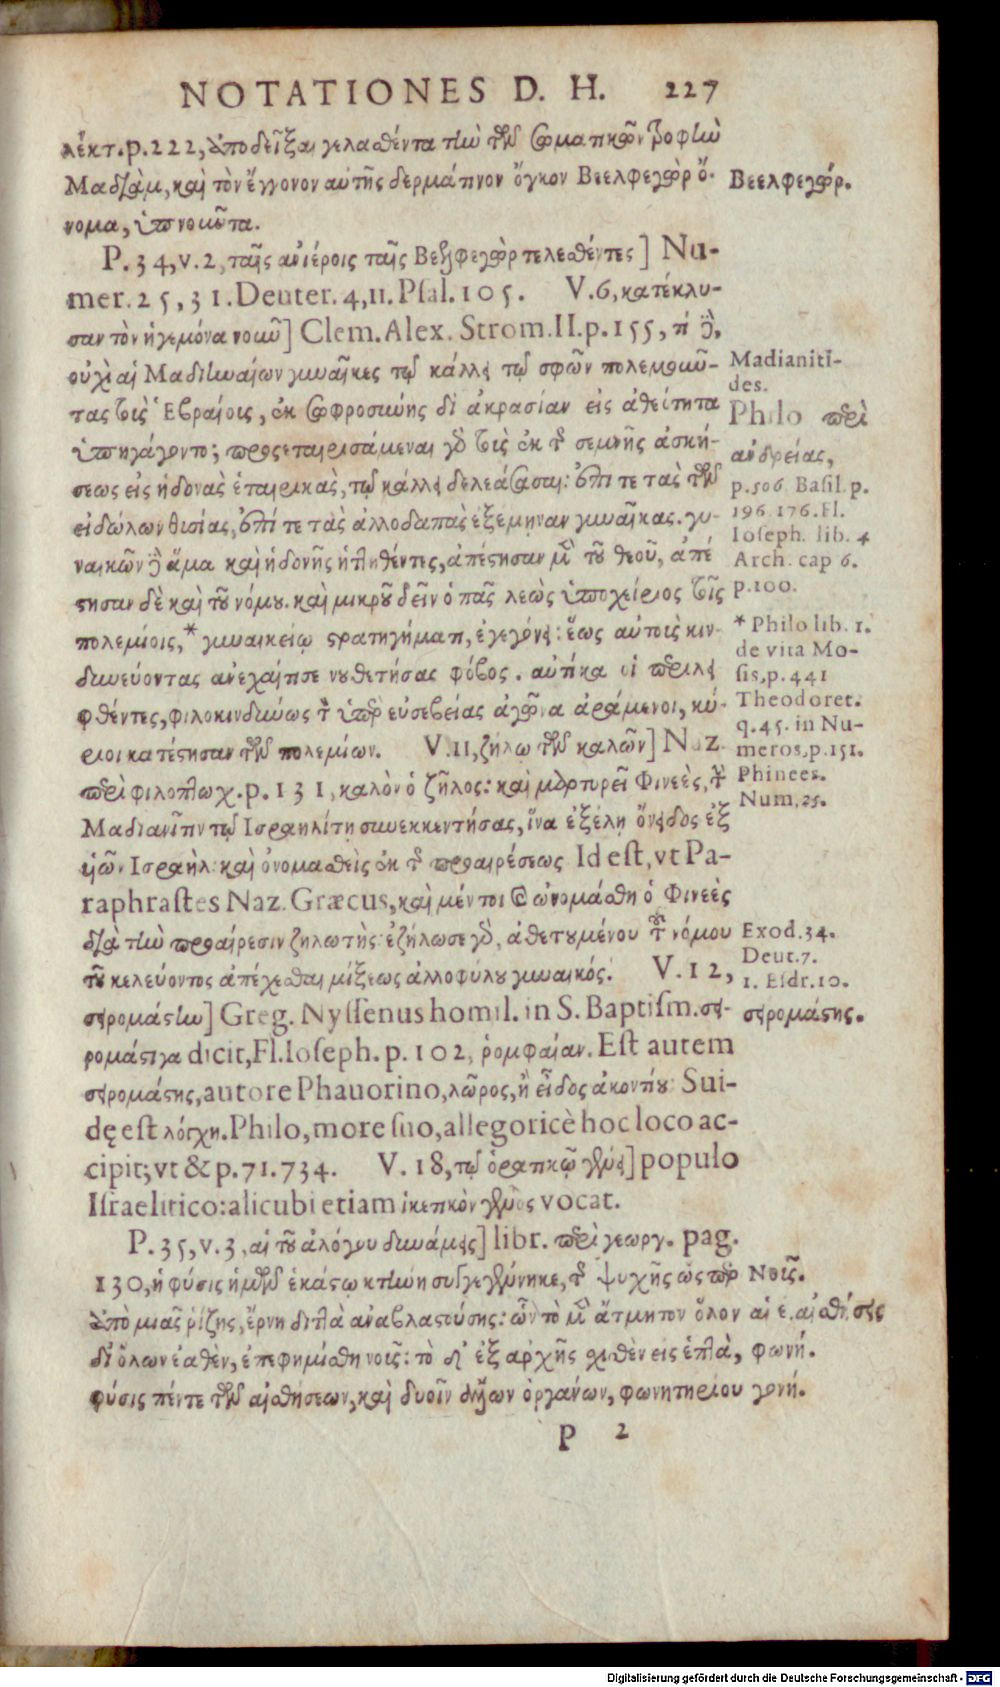 NOTATIONES D. H. 227
λέκτ. p. 222, ἀποδεῖξαι γελαθέντα τὴν τῶν σωματικῶν τροφὴν
Μαδιὰμ, καὶ τὸν ἔγγονον αὐτῆς δερμάτινον ὄγκον Βεελφεγὼρ ὄ-
νομα, ὑπνοῦντα.
Βεελφεγώρ.
P. 34, v. 2, ταῖς ἀνιέροις ταῖς Βεελφεγὼρ τελεσθέντες] Nu-
mer. 25, 31. Deuter. 4, 11. Psal. 105. V. 6, κατέκλυ-
σαν τὸν ἡγεμόνα νοῦν] Clem. Alex. Strom. II. p. 155, τί δὲ,
οὐχὶ αἱ Μαδιηναίων γυναῖκες τῷ κάλλει τῷ σφῶν πολεμοῦν-
τας τοὺς Ἑβραίους, ἐκ σωφροσύνης δι᾽ ἀκρασίαν εἰς ἀθεότητα
ὑπηγάγοντο; προσεταιρισάμεναι γὰρ τοὺς ἐκ τῆς σεμνῆς ἀσκή-
σεως εἰς ἡδονὰς ἑταιρικὰς, τῷ κάλλει δελεάσασαι: ἐπί τε τὰς τῶν
εἰδώλων θυσίας, ἐπί τε τὰς ἀλλοδαπὰς ἐξέμηναν γυναῖκας. γυ-
ναικῶν δὲ ἅμα καὶ ἡδονῆς ἡττηθέντες, ἀπέστησαν μὲν τοῦ θεοῦ, ἀπέ
στησαν δὲ καὶ τοῦ νόμου. καὶ μικροῦ δεῖν ὁ πᾶς λεὼς ὑποχείριος τοῖς
πολεμίοις, * γυναικείῳ στρατηγήματι, ἐγεγόνει: ἕως αὐτοὺς κιν-
δυνεύοντας ἀνεχαίτισε νουθετήσας φόβος. αὐτίκα οἱ περιλει
φθέντες, φιλοκινδύνως τὸν ὑπὲρ εὐσεβείας ἀγῶνα ἀράμενοι, κύ-
ριοι κατέστησαν τῶν πολεμίων. V. 11, ζήλῳ τῶν καλῶν] Naz.
περὶ φιλοπτωχ. p. 131, καλὸν ὁ ζῆλος: καὶ μαρτυρεῖ Φινεὲς, τὴν
Μαδιανῖτιν τῷ Ἰσραηλίτῃ συνεκκεντήσας, ἵνα ἐξέλῃ ὄνειδος ἐξ
υἱῶν Ἰσραὴλ: καὶ ὀνομασθεὶς ἐκ τῆς προαιρέσεως Id est, vt Pa-
raphrastes Naz. Græcus, καὶ μέντοι καὶ ὠνομάσθη ὁ Φινεὲς
διὰ τὴν προαίρεσιν ζηλωτὴς: ἐζήλωσε γὰρ, ἀθετουμένου τοῦ νόμου
τοῦ κελεύοντος ἀπέχεσθαι μίξεως ἀλλοφύλου γυναικός. V. 12,
σειρομάστην] Greg. Nyssenus homil. in S. Baptism. σει-
ρομάστιγα dicit, Fl. Ioseph. p. 102, ῥομφαίαν. Est autem
σειρομάστης, autore Phauorino, λῶρος, ἢ εἶδος ἀκοντίου: Sui-
dę est λόγχη. Philo, more suo, allegoricè hoc loco ac-
cipit; vt & p. 71. 734. V. 18, τῷ ὁρατικῷ γένει] populo
Israelitico: alicubi etiam ἱκετικὸν γένος vocat.
P. 35, v. 3, αἱ τοῦ ἀλόγου δυνάμεις] libr. περὶ γεωργ. pag.
130, ἡ φύσις ἡμῶν ἑκάστῳ κτήνη συγγεγέννηκε, τῆς ψυχῆς ὥσπερ
ἀπὸ μιᾶς ῥίζης, ἔρνη διττὰ ἀναβλαστούσης: ὧν τὸ μὲν ἄτμητον ὅλον
δι᾽ ὅλων ἐαθὲν, ἐπεφημίσθη νοῦς: τὸ δ᾽ ἐξαρχῆς σχισθὲν εἰς ἑπτὰ,
φύσεις πέντε τῶν αἰσθήσεων, καὶ δυοῖν ἄλλων ὀργάνων, φωνητηρίου
P 2
Madianiti-
des.
Philo περὶ
ἀνδρείας,
p. 506. Basil. p.
196. 176. Fl.
Ioseph. lib. 4
Arch. cap 6.
p. 100.
* Philo lib. 1.
de vita Mo-
sis, p. 441
Theodoret.
q. 45. in Nu-
meros, p. 151.
Phinees.
Num, 25.
Exod. 34.
Deut. 7.
1. Esdr. 10.
σειρομάστης.
Νοῦς.
αἴσθησις
φωνή.
γονή.
Digitalisierung gefördert durch die Deutsche Forschungsgemeinschaft - DFG